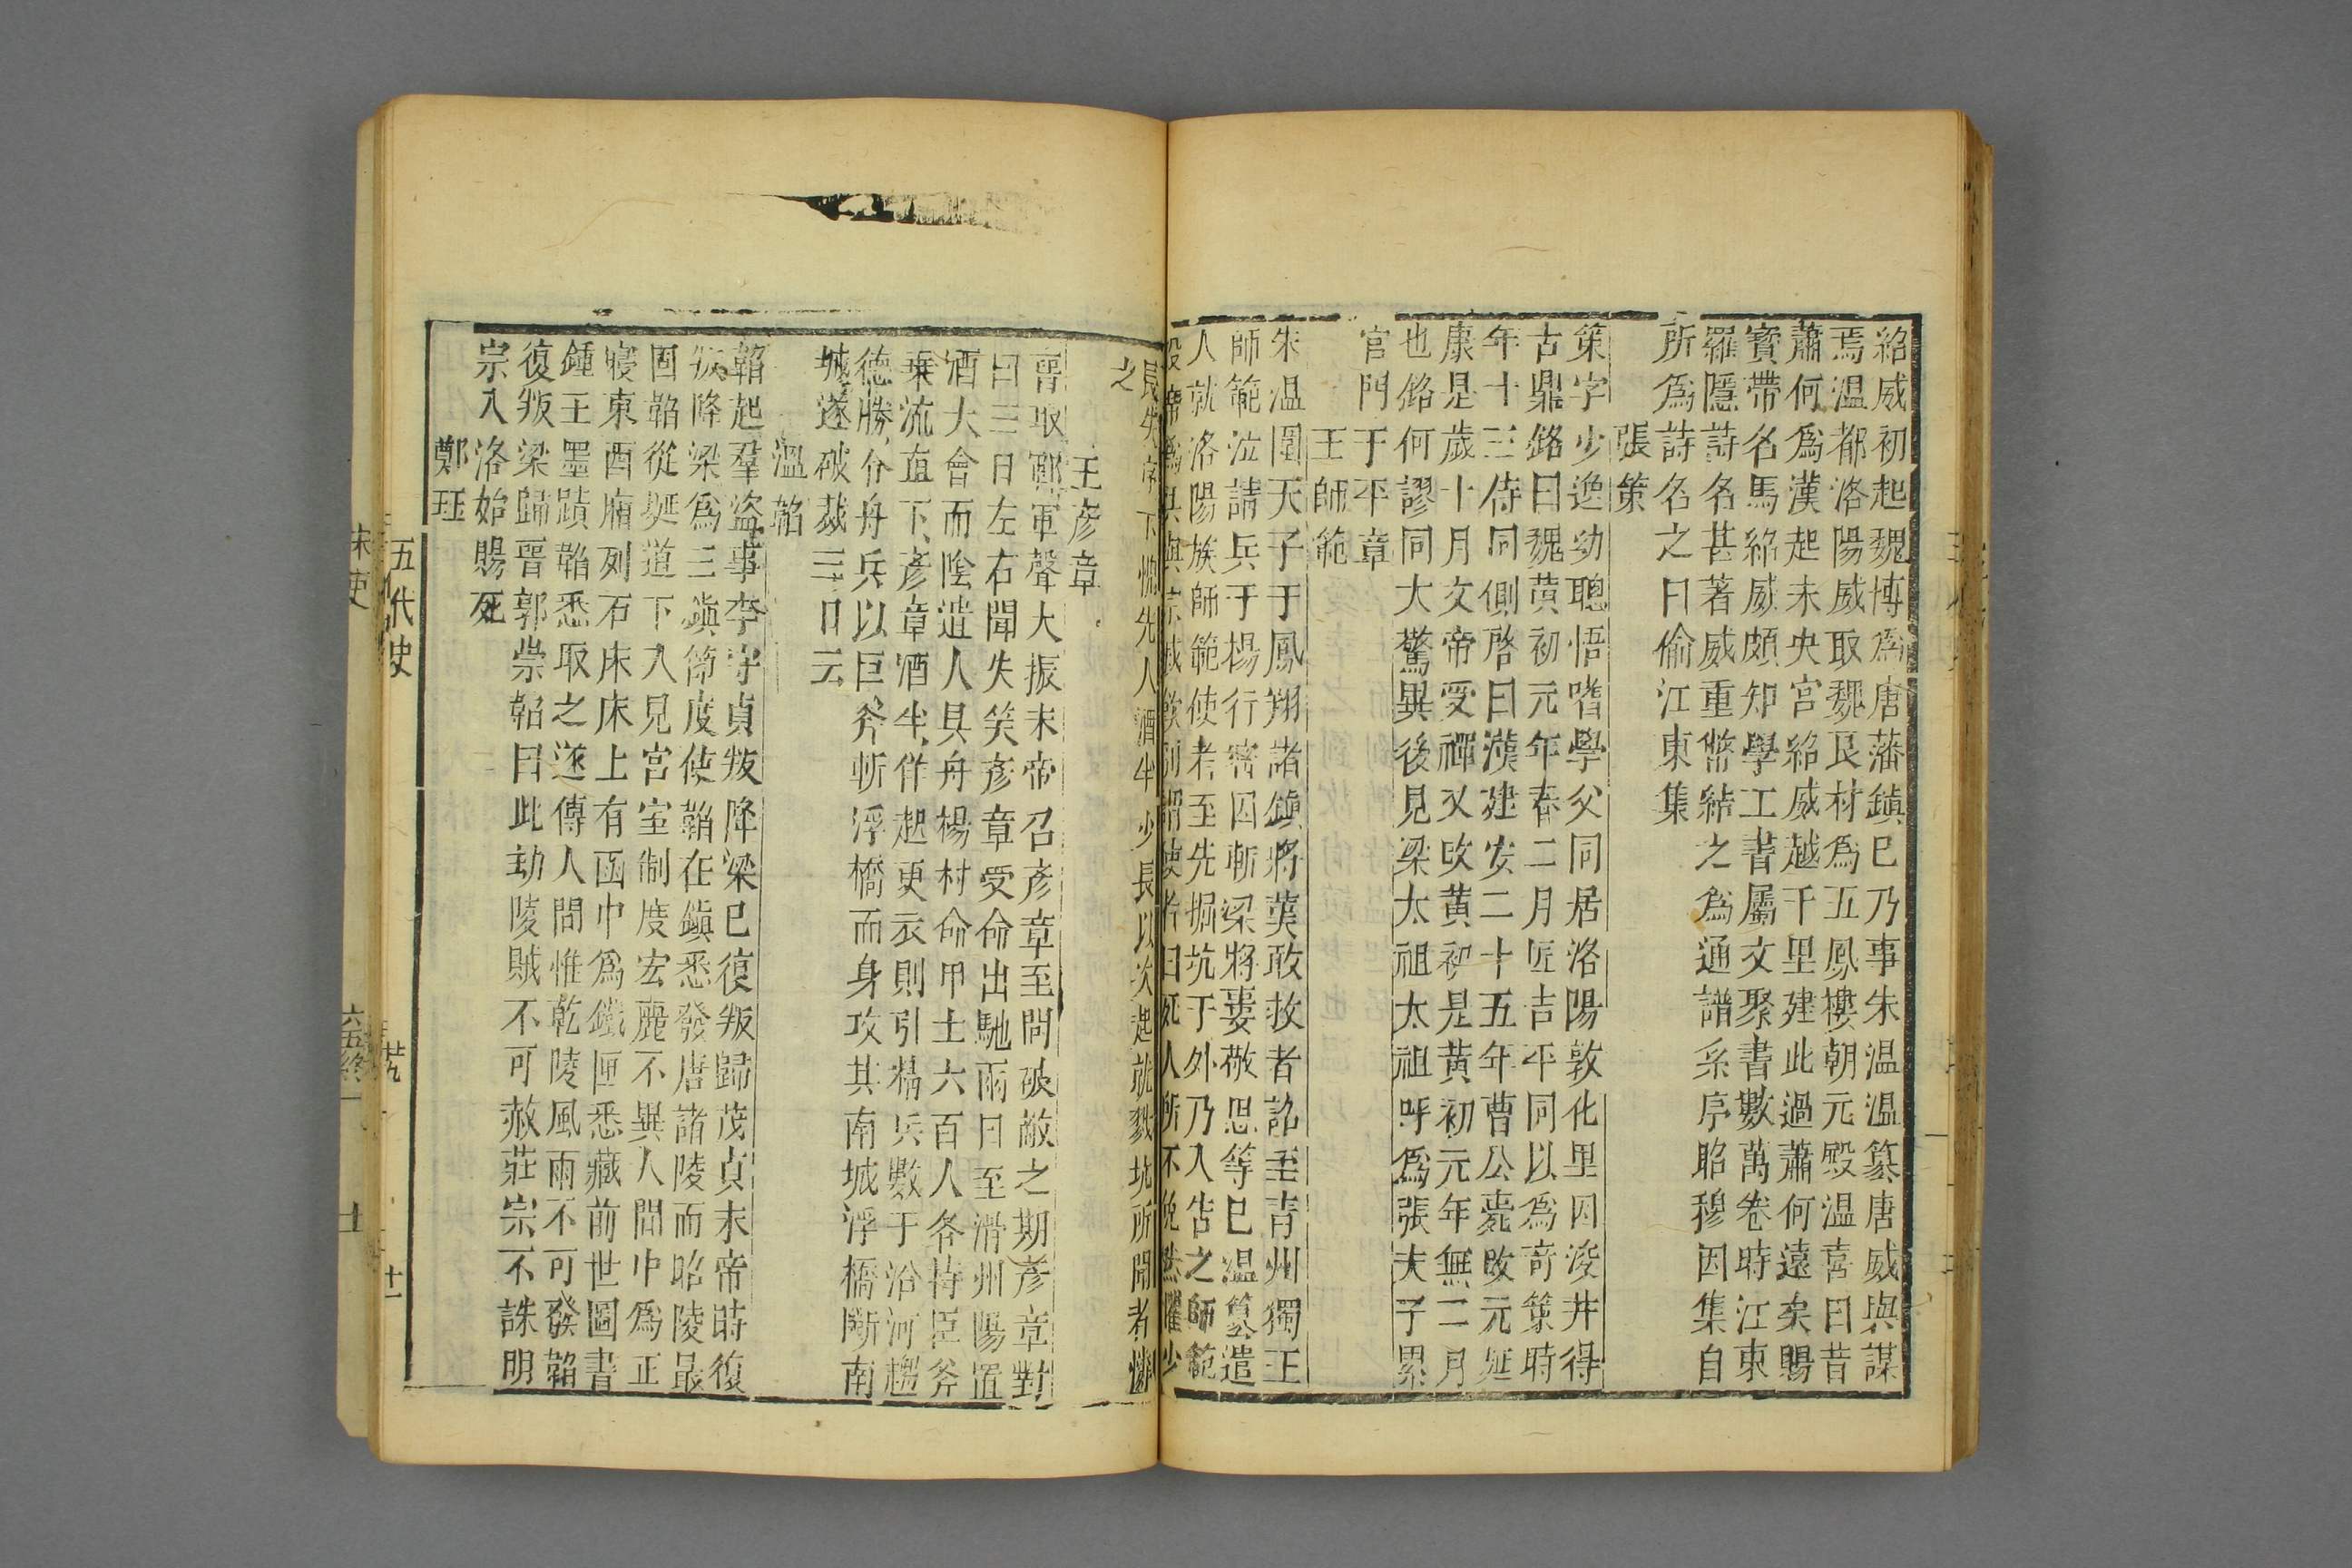 紹威初起魏博爲唐藩鎮已乃事朱温温簒唐威與謀
焉温都洛陽威取魏良材爲五鳳樓朝元殿温喜曰昔
蕭何爲漢起未央宮紹威越千里建此過蕭何遠矣賜
寳帶名馬紹威頗知學工書屬文聚書數萬卷時江東
羅隱詩名甚著威重幣結之爲通譜系序昭穆因集自
所爲詩名之曰偷江東集
張策
策字少逸幼聰悟嗜學父同居洛陽敦化里因浚井得
古鼎銘曰魏黃初元年春二月匠吉平同以爲奇策時
年十三侍同側啓曰漢建安二十五年曹公薨改元延
康是歲十月文帝受禪又改黃初是黃初元年無二月
也銘何謬同大驚異後見梁太祖太祖呼爲張夫子累
官門下平章
王師範
朱温圍天子于鳳翔諸鎮將莫敢救者詔至青州獨王
師範泣請兵于楊行密因斬梁將婁敬思等已温簒遣
人就洛陽族師範使者至先掘坑于外乃入告之師範
設席爲具與宗戚飲別謂使者曰死人所不免然懼少
長失序下愧先人酒半少長以次起就戮坑所聞者憐
之
王彥章
晉取鄆軍聲大振末帝召彥章至問破敵之期彥章對
曰三日左右聞失笑彥章受命出馳兩日至滑州陽置
酒大會而陰遣人具舟楊村命甲士六百人各持巨斧
乗流直下彥章酒半佯起更衣則引精兵數千沿河趨
德勝令舟兵以巨斧斬浮橋而身攻其南城浮橋斷南
城遂破裁三日云
温韜
韜起羣盜事李守貞叛降梁已復叛歸茂貞末帝時復
叛降梁爲三鎮節度使韜在鎮悉發唐諸陵而昭陵最
固韜從埏道下入見宮室制度宏麗不異人間中爲正
寢東西廂列石床床上有函中爲鐵匣悉藏前世圖書
鍾王墨蹟韜悉取之遂傳人間惟乾陵風雨不可發韜
復叛梁歸晉郭崇韜曰此劫陵賊不可赦莊宗不誅明
宗入洛始賜死
鄭珏
五代史